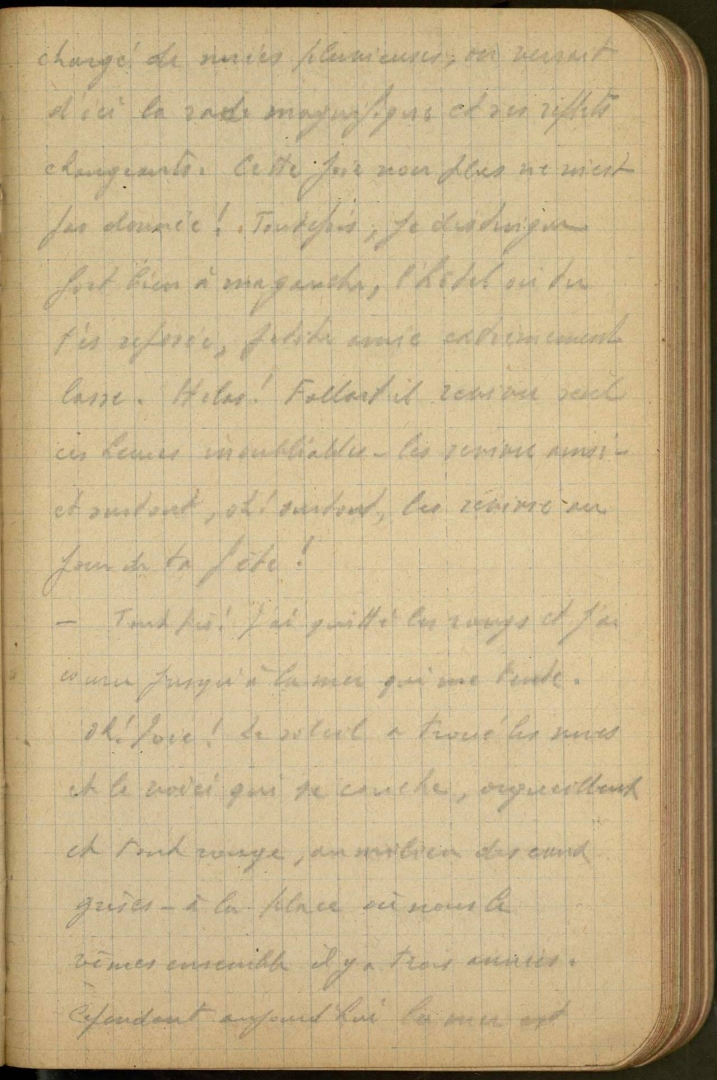 chargé de nuées pluvieuses, on verrait
d'ici la rade magnifique et ses reflets
changeants. Cette joie non plus ne m'est
pas donnée! Toutefois, je distingue
fort bien à ma gauche, l'hôtel où tu
t'es reposée, petite amie extrêmement
lasse. Hélas! Fallait il revivre seul
ces heures inoubliables - les revivre ainsi -
et surtout, oh! surtout, les revivre au
jour de ta fête!
— Tant pis! J'ai quitté les rangs et j'ai
couru jusqu'à la mer qui me tente.
Oh! Joie! Le soleil a troué les nues
et le voici qui se couche, orgueilleux
et tout rouge, au milieu des eaux
grises - à la place où nous le
vîmes ensemble il y a trois années.
Cependant aujourd'hui la mer est